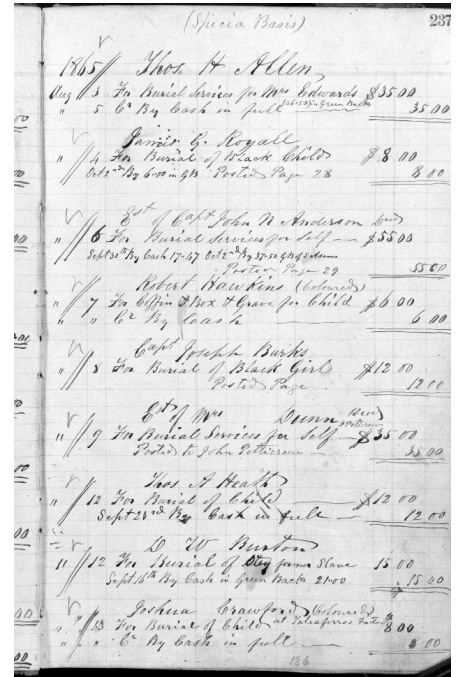 (Specia Basis)
237
1865 // Thos H Allen
Aug // 3 For Burial Services for Mrs Edwards $35 00
" // 5 Cr By Cash in full 35 00
James G. Royall
" // 4 For Burial of Black Child $8 00
Oct 2nd By 6.00 in GB Posted Page 28 8 00
Est of Capt John N Anderson Decd
" // 6 For Burial Services for Self — $55 00
Sept 30th By Cash 17.47 Oct 2nd By 37.50
Posted Page 29 55 00
Robert Hawkins (Coloured)
" // 7 For Coffin & Box & Grave for Child $6 00
" " Cr By Cash 6 00
Capt Joseph Burks
" // 8 For Burial of Black Girl $12 00
Posted Page 12 00
Est of Mrs Dunn Decd
" // 9 For Burial Services for Self — $35 00
Posted to John 35 00
Thos A Heath
" // 12 For Burial of Child — $12 00
Sept 23rd By Cash in full — 12 00
D W Burton
" // 12 For Burial of former Slave 15 00
Sept 16th By Cash in Green Back 21.00 15 00
Joshua Crawford (Coloured)
" // 13 For Burial of Child at Taliaferros 8 00
" " Cr By Cash in full — 8 00
186